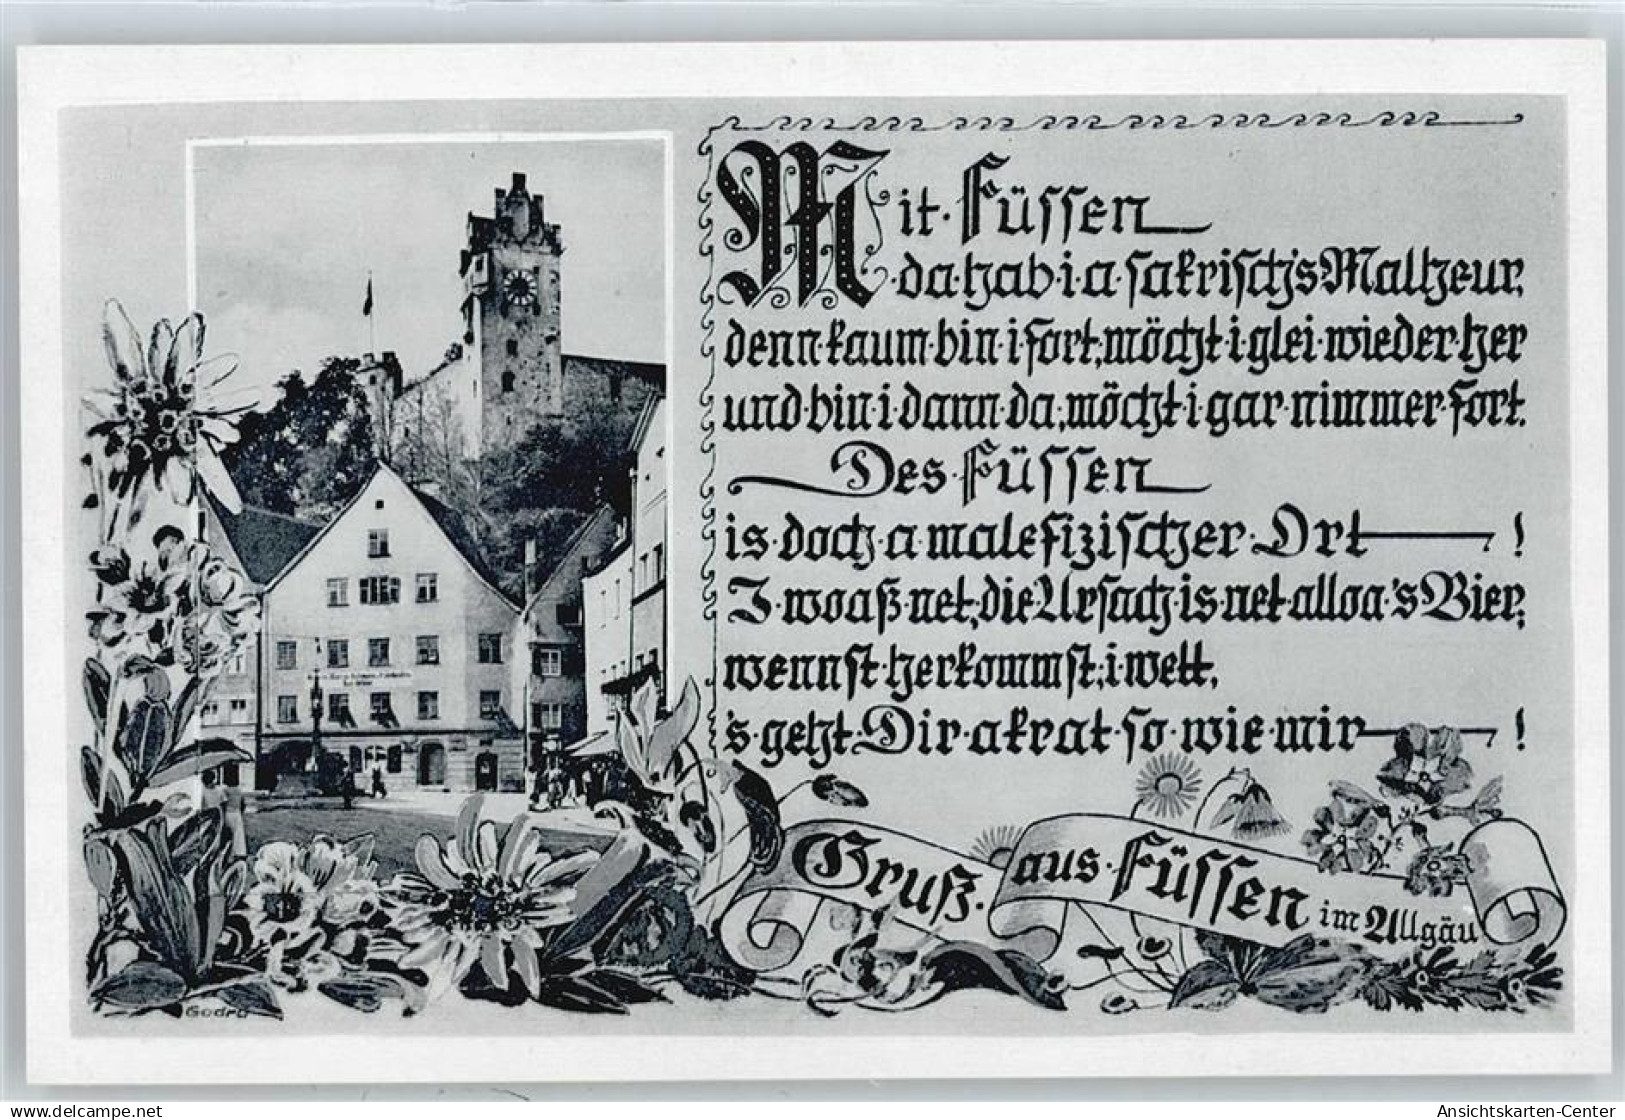 Mit·Füssen
da·hab·i·a·sakrisch's Malheur,
denn·kaum·bin·i fort, möcht·i glei·wieder·her
und·bin·i dann·da, möcht·i gar·nimmer·fort.
Des·Füssen
is·doch·a malefizischer·Ort !
I·woaß·net, die Ursach·is net·alloa·'s Bier,
wennst·herkommst, i wett,
's·geht·Dir·akrat·so·wie·mir !
Gruß·aus·Füssen im Allgäu
Godro
www.delcampe.net
Ansichtskarten-Center